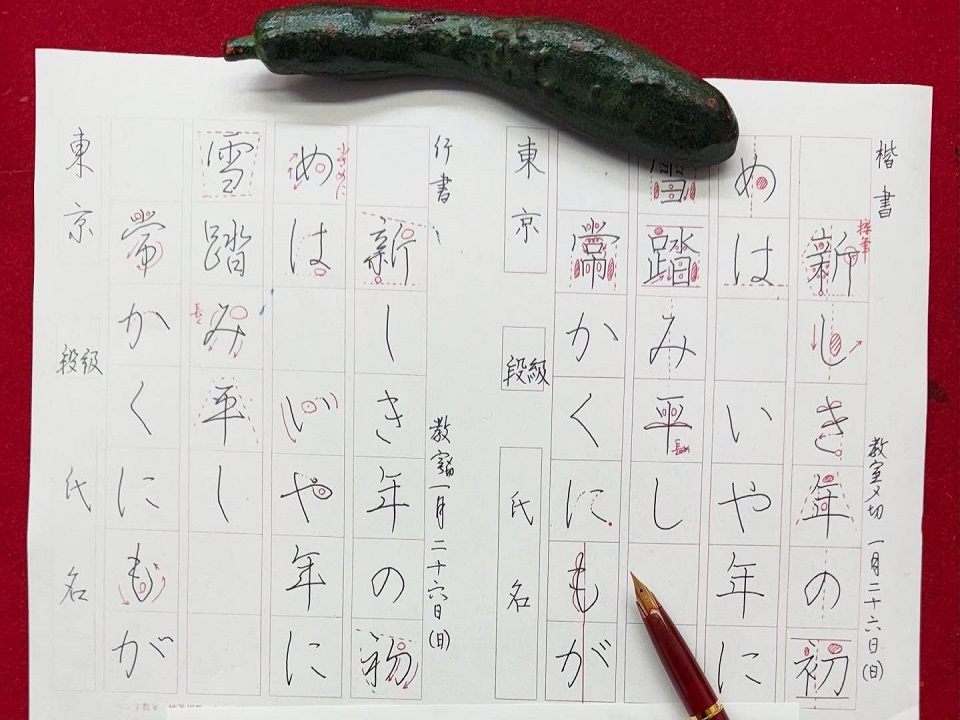 楷書 教室〆切 一月二十六日(日)
新しき年の初
めはいや年に
雪踏み平し
常かくにもが
東京 段級 氏名
行書 教室〆切 一月二十六日(日)
新しき年の初
小さめに
めはいや年に
雪踏み平し
常かくにもが
東京 段級 氏名